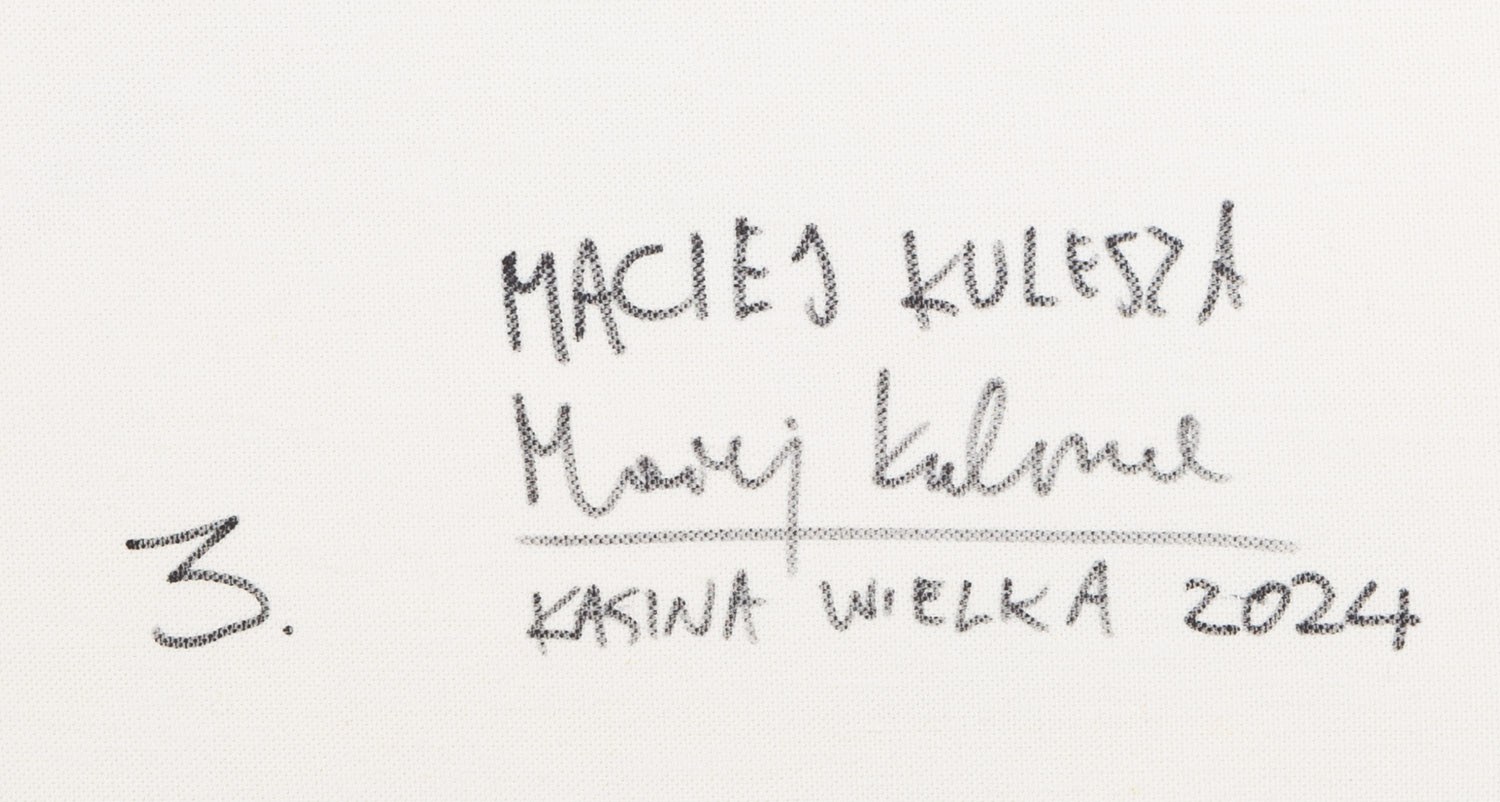 MACIEJ KULESZA
Maciej Kulesza
3.
KASINA WIELKA 2024